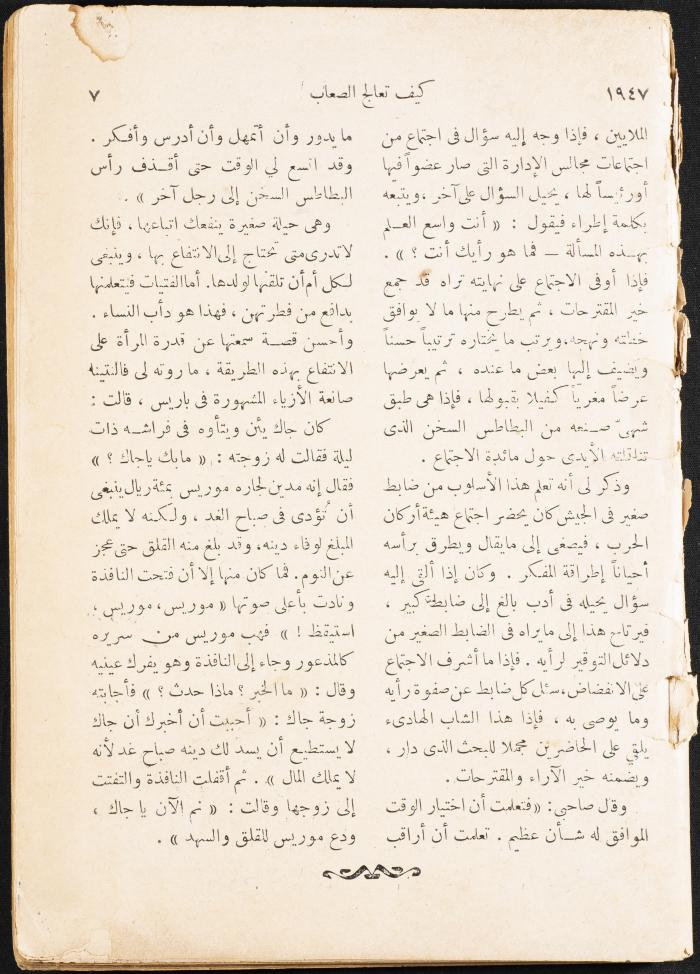 ١٩٤٧
كيف تعالج الصعاب
٧
الملايين ، فإذا وجه إليه سؤال فى اجتماع من
اجتماعات مجالس الإدارة التى صار عضواً فيها
أو رئيساً لها ، يحيل السؤال على آخر ، ويتبعه
بكلمة إطراء فيقول : « أنت واسع العلم
بهذه المسألة — فما هو رأيك أنت ؟ » .
فإذا أوفى الاجتماع على نهايته تراه قد جمع
خير المقترحات ، ثم يطرح منها ما لا يوافق
خطته ونهجه، ويرتب ما يختاره ترتيباً حسناً
ويضيف إليها بعض ما عنده ، ثم يعرضها
عرضاً مغرياً كفيلا بقبولها ، فإذا هى طبق
شهىّ صنعه من البطاطس السخن الذى
تناقلته الأيدى حول مائدة الاجتماع .
وذكر لى أنه تعلم هذا الأسلوب من ضابط
صغير فى الجيش كان يحضر اجتماع هيئة أركان
الحرب ، فيصغى إلى ما يقال ويطرق برأسه
أحياناً إطراقة المفكر . وكان إذا ألقى إليه
سؤال يحيله فى أدب بالغ إلى ضابط كبير ،
فيرتاح هذا إلى ما يراه فى الضابط الصغير من
دلائل التوقير لرأيه . فإذا ما أشرف الاجتماع
على الانفضاض، سئل كل ضابط عن صفوة رأيه
وما يوصى به ، فإذا هذا الشاب الهادىء
يلقى على الحاضرين مجملا للبحث الذى دار ،
ويضمنه خير الآراء والمقترحات .
وقال صاحبى: «فتعلمت أن اختيار الوقت
الموافق له شـأن عظيم . تعلمت أن أراقب
ما يدور وأن أتمهل وأن أدرس وأفكر .
وقد اتسع لي الوقت حتى أقذف رأس
البطاطس السخن إلى رجل آخر » .
وهى حيلة صغيرة ينفعك اتباعها ، فإنك
لا تدرى متى تحتاج إلى الانتفاع بها ، وينبغى
لكل أم أن تلقنها لولدها. أما الفتيات فيتعلمنها
بدافع من فطرتهن ، فهذا هو دأب النساء .
وأحسن قصة سمعتها عن قدرة المرأة على
الانتفاع بهذه الطريقة ، ما روته لى فالنتينه
صانعة الأزياء المشهورة فى باريس ، قالت :
كان جاك يئن ويتأوه فى فراشه ذات
ليلة فقالت له زوجته : « ما بك يا جاك ؟ »
فقال إنه مدين لجاره موريس بمئة ريال ينبغى
أن تُؤدى فى صباح الغد ، ولكنه لا يملك
المبلغ لوفاء دينه، وقد بلغ منه القلق حتى عجز
عن النوم. فما كان منها إلا أن فتحت النافذة
ونادت بأعلى صوتها « موريس، موريس ،
استيقظ ! » فهب موريس من سريره
كالمذعور وجاء إلى النافذة وهو يفرك عينيه
وقال : « ما الخبر ؟ ماذا حدث ؟ » فأجابته
زوجة جاك : « أحببت أن أخبرك أن جاك
لا يستطيع أن يسد لك دينه صباح غد لأنه
لا يملك المال » . ثم أقفلت النافذة والتفتت
إلى زوجها وقالت : « نم الآن يا جاك ،
ودع موريس للقلق والسهد » .